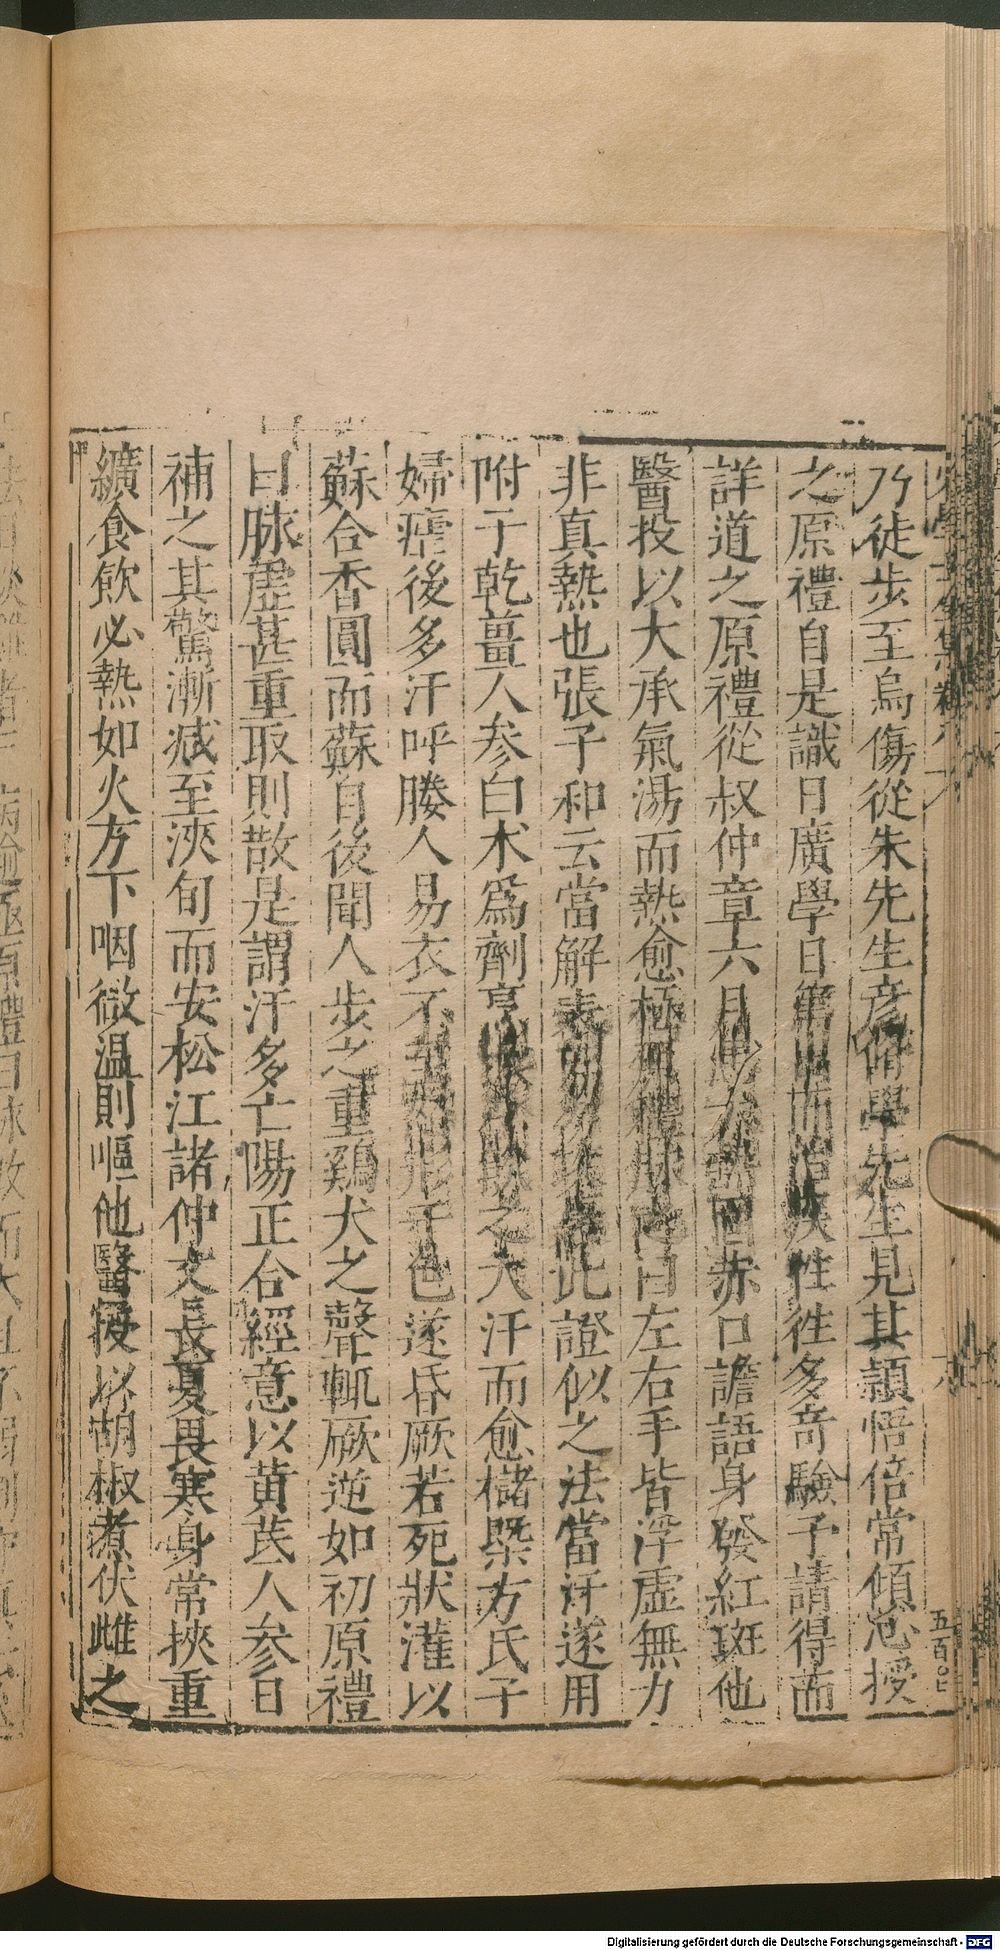 乃徒步至烏傷從朱先生彥脩學先生見其頴悟倍常傾心授
之原禮自是識日廣學日篤出而治疾往往多奇驗予請得而
詳道之原禮從叔仲章六月患大熱面赤口譫語身發紅斑他
醫投以大承氣湯而熱愈極原禮脉之曰左右手皆浮虛無力
非真熱也張子和云當解表而勿攻裏此證似之法當汗遂用
附子乾薑人參白术爲劑烹液冷飲之大汗而愈櫧槩方氏子
婦瘧後多汗呼媵人易衣不至怒形于色遂昏厥若死狀灌以
蘇合香圓而蘇自後聞人步之重雞犬之聲輒厥逆如初原禮
曰脉虛甚重取則散是謂汗多亡陽正合經意以黄芪人參日
補之其驚漸减至浹旬而安松江諸仲文長夏畏寒身常挾重
纊食飲必熱如火方下咽微温則嘔他醫授以胡椒煮伏雌之
五百
Digitalisierung gefördert durch die Deutsche Forschungsgemeinschaft - DFG